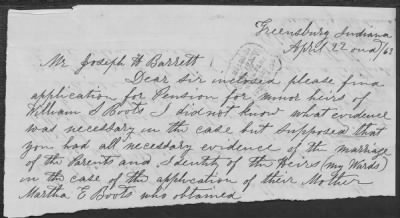 Greensburg Indiana
April 22 ond/63
Mr Joseph H Barrett
Dear Sir inclosed please find
application for Pension for minor heirs of
William S Boots I did not know what evidence
was necessary in the case but supposed that
you had all necessary evidence of the marriage
of the Parents and Identity of the Heirs (my Wards)
in the case of the application of their Mother
Martha E Boots who obtained